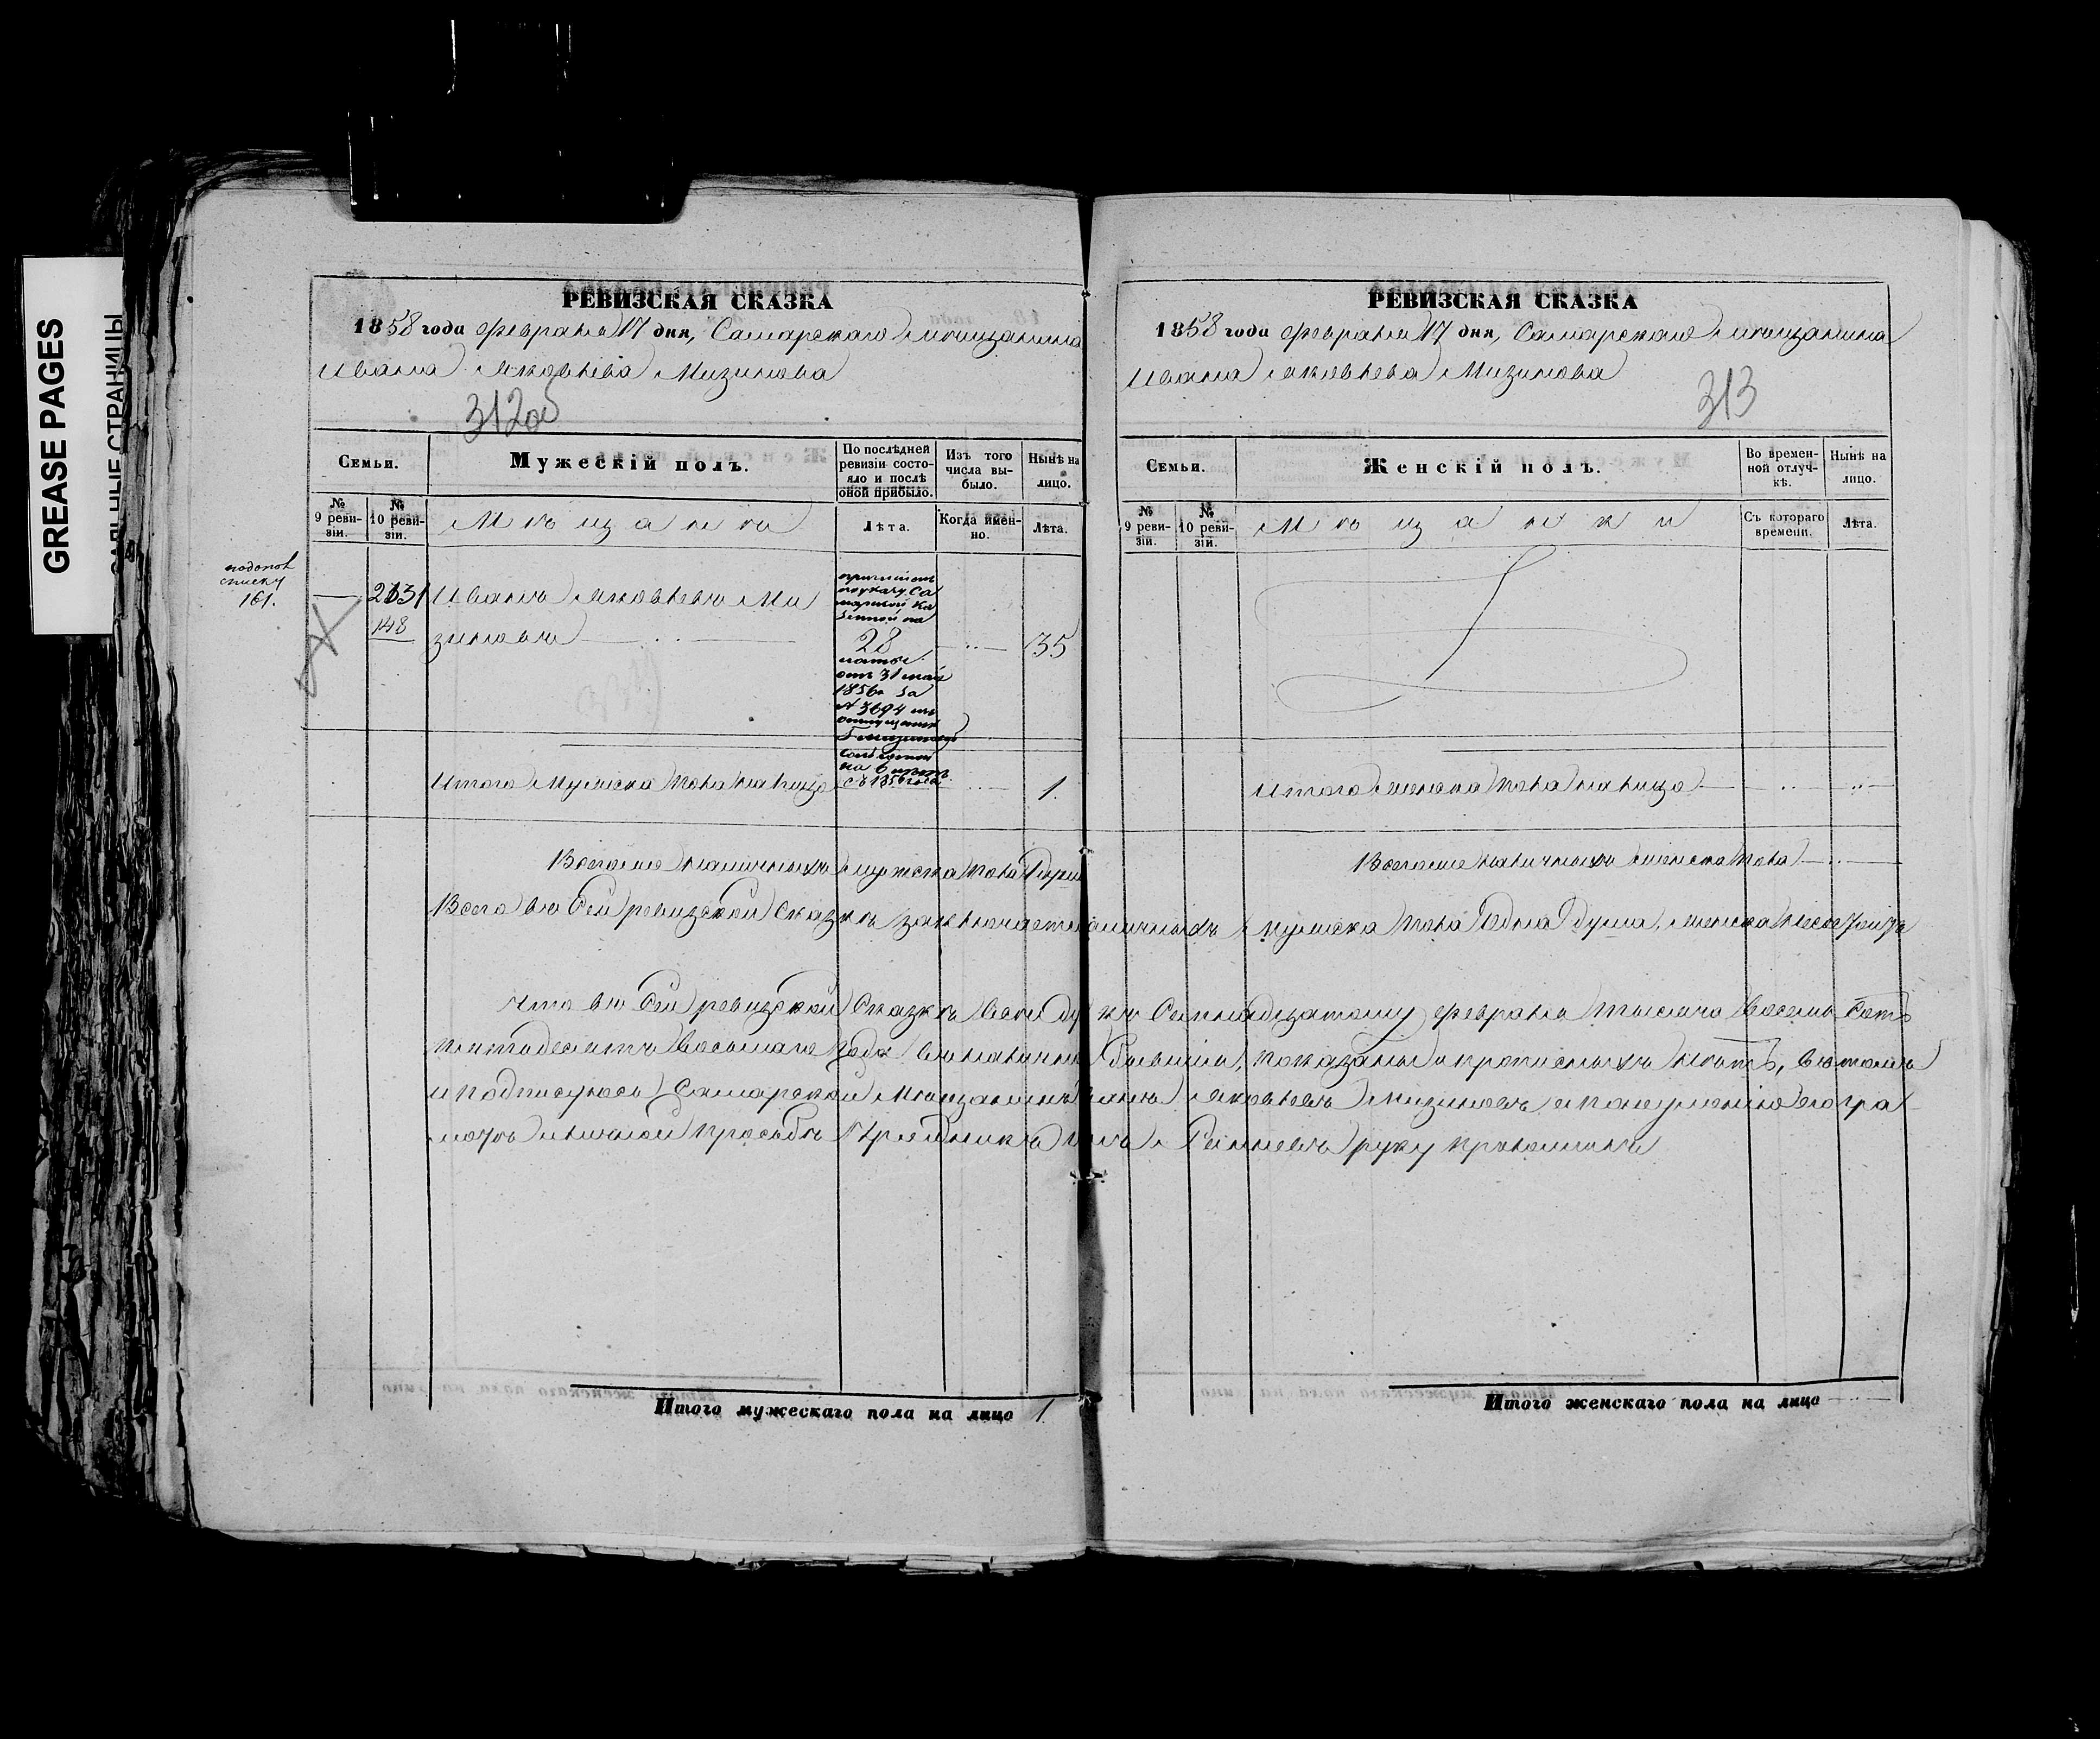 GREASE PAGES
САЛЬНЫЕ СТРАНИЦЫ
РЕВИЗСКАЯ СКАЗКА
1858 года февраля 17 дня, Самарскаго мѣщанина
Ивана Яковлева Мизинова
312об
Семьи.
Мужескій полъ.
По послѣдней ревизіи состояло и послѣ оной прибыло.
Изъ того числа выбыло.
Нынѣ на лицо.
№ 9 ревизіи.
№ 10 ревизіи.
Мѣщане
Лѣта.
Когда именно.
Лѣта.
списку
161.
2131
148
Иванъ Яковлевъ Ми
зиновъ
28
35
отъ 31 мая
1856 за
№ 3694
Итого мужеска пола на лицо
1.
Всего же наличныхъ мужеска пола 1 душа
Всего въ сей ревизской сказкѣ заключается наличныхъ мужеска пола одна душа, женска
Что въ сей ревизской сказкѣ всѣ къ семнадцатому февраля тысяча восемь сотъ
пятьдесятъ восьмаго года въ наличии бывшіе, показаны и прописныхъ нѣтъ, въ томъ
и подписуюсь Самарской мѣщанинъ Иванъ Яковлевъ Мизиновъ а по неумѣнію его гра
мотѣ личной просьбѣ руку приложилъ
Итого мужескаго пола на лицо 1
РЕВИЗСКАЯ СКАЗКА
1858 года февраля 17 дня, Самарскаго мѣщанина
Ивана Яковлева Мизинова
313
Семьи.
Женскій полъ.
Во временной отлучкѣ.
Нынѣ на лицо.
№ 9 ревизіи.
№ 10 ревизіи.
Мѣщанки
Съ котораго времени.
Лѣта.
Итого женска пола на лицо
Всего же наличныхъ женска пола
Итого женскаго пола на лицо